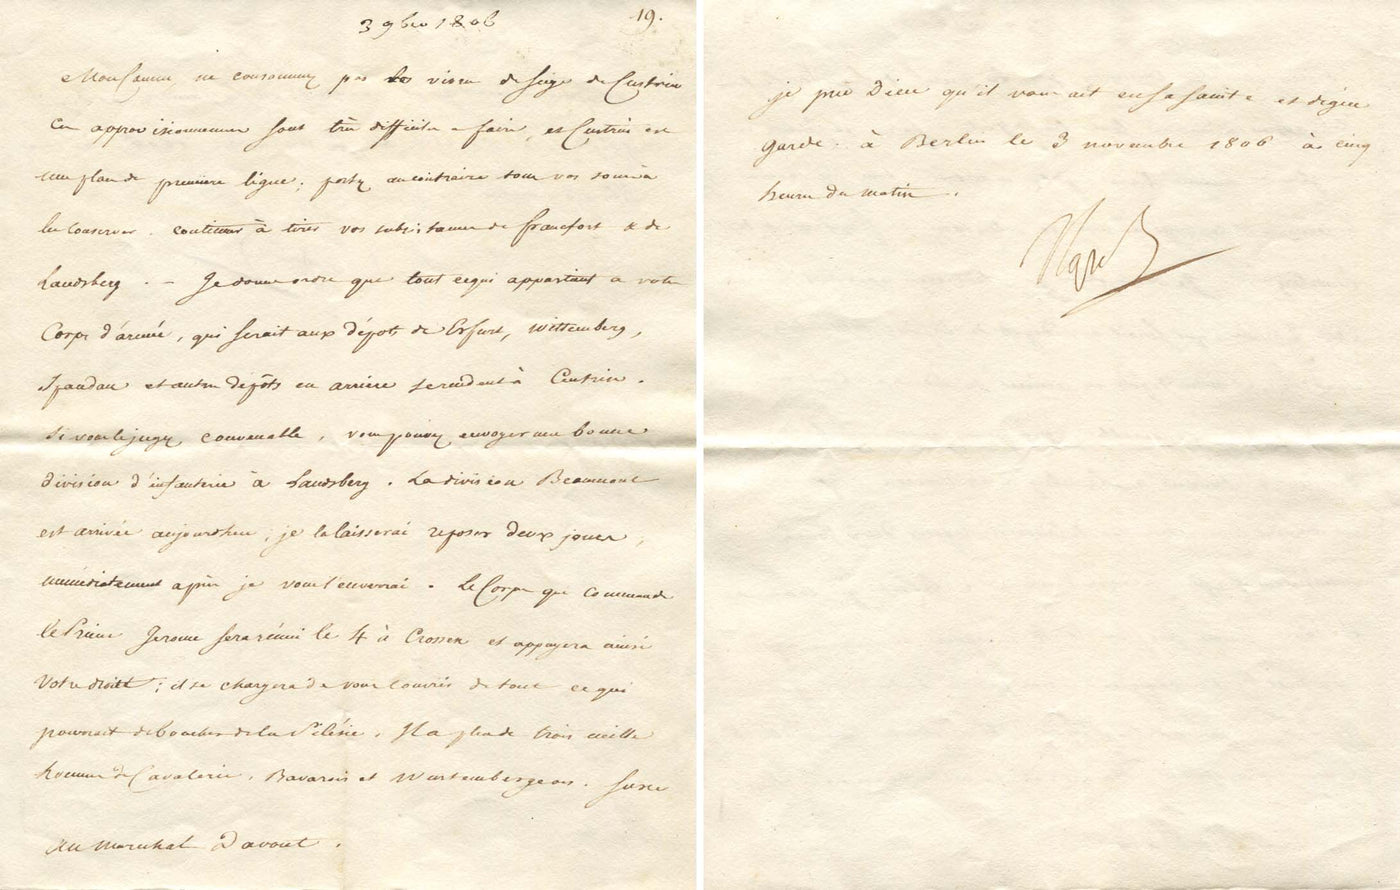 3 9bre 1806
19.
Mon Cousin ne consommez pas les vivres de siège de Custrin
Ces approvisionnemens sont très difficiles a faire, et Custrin est
une place de première ligne; portez au contraire tous vos soins à
les conserver. continuez à tirer vos subsistances de francfort & de
Landsberg. - Je donne ordre que tout ce qui appartient a votre
Corps d'armée, qui serait aux dépots de Erfurt, Wittemberg,
Spandau et autres dépôts en arrière se rendent à Custrin.
Si vous le jugez convenable, vous pouvez envoyer une bonne
division d'infanterie à Landsberg. La division Beaumont
est arrivée aujourd'hui; je la laisserai reposer deux jours,
immédiatement après je vous l'enverrai. Le Corps que commande
le Prince Jerome sera réuni le 4 à Crossen et appuyera ainsi
votre droite; il se chargera de vous couvrir de tout ce qui
pourrait déboucher de la Silésie. Il a plus de trois mille
hommes de Cavalerie, Bavarois et Wurtembergeois. Sur ce
Au Maréchal Davout.
je prie Dieu qu'il vous ait en sa sainte et digne
garde. à Berlin le 3 novembre 1806 à cinq
heures du matin.